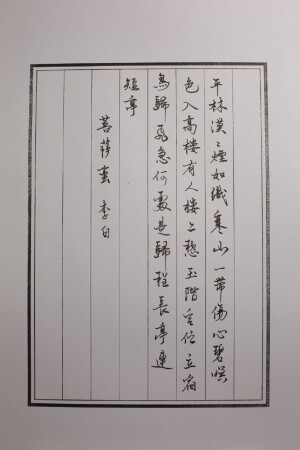 平林漠々煙如織寒山一帶傷心碧暝
色入高樓有人樓上愁玉階空佇立宿
鳥歸飛急何處是歸程長亭連
短亭
菩薩蠻 李白